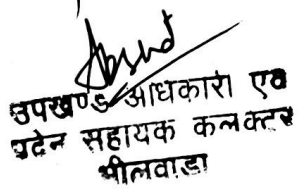 उपखण्ड अधिकारी एवं
पदेन सहायक कलक्टर
भीलवाड़ा